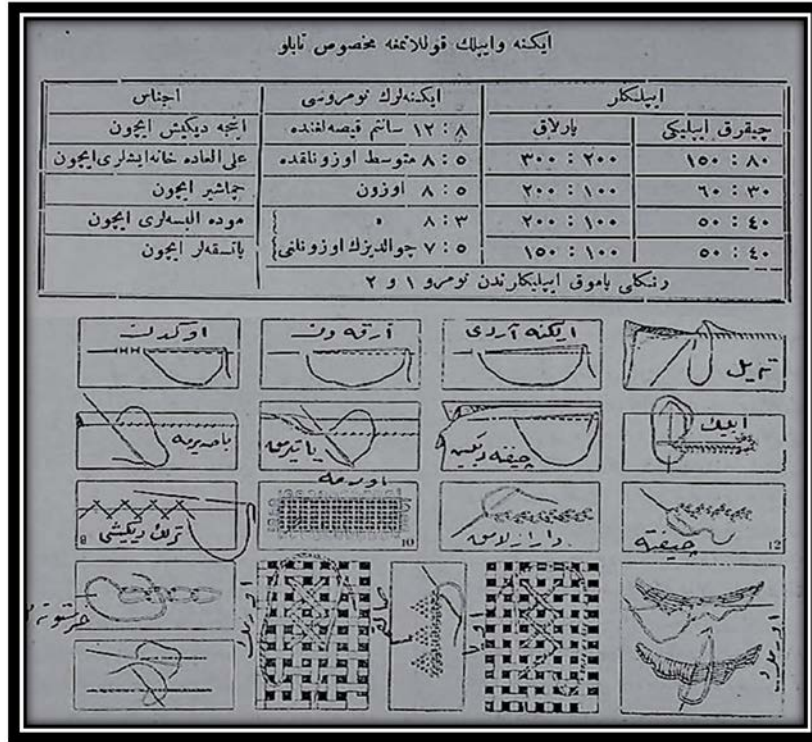 ایكنه وایپلك قوللانمغه مخصوص تابلو
ایپلكلر ایكنه‌لرك نومروسی اجناس
چیقرق ایپلیكی پارلاق ٨ : ١٢ سانتم قیصه‌لغنده اینجه دیكیش ایچون
٨٠ : ١٥٠ ٢٠٠ : ٣٠٠ ٥ : ٨ متوسط اوزونلقده علی العاده خانه ایشلری ایچون
٣٠ : ٦٠ ١٠٠ : ٢٠٠ ٥ : ٨ اوزون چماشیر ایچون
٤٠ : ٥٠ ١٠٠ : ٢٠٠ ٣ : ٨ » موده البسه‌لری ایچون
٤٠ : ٥٠ ١٠٠ : ١٥٠ ٥ : ٧ چوالدیزك اوزونلغی یاتسقه‌لر ایچون
رنكلی پاموق ایپلیكلرندن نومرو ١ و ٢
تریل ایكنه آردی آرقه دن اوكدن
ایلیك چیفته دیكیش یاتیرمه باصدیرمه
12 چیفته دارازلامق 10 اورمه 8 ترك دیكیشی